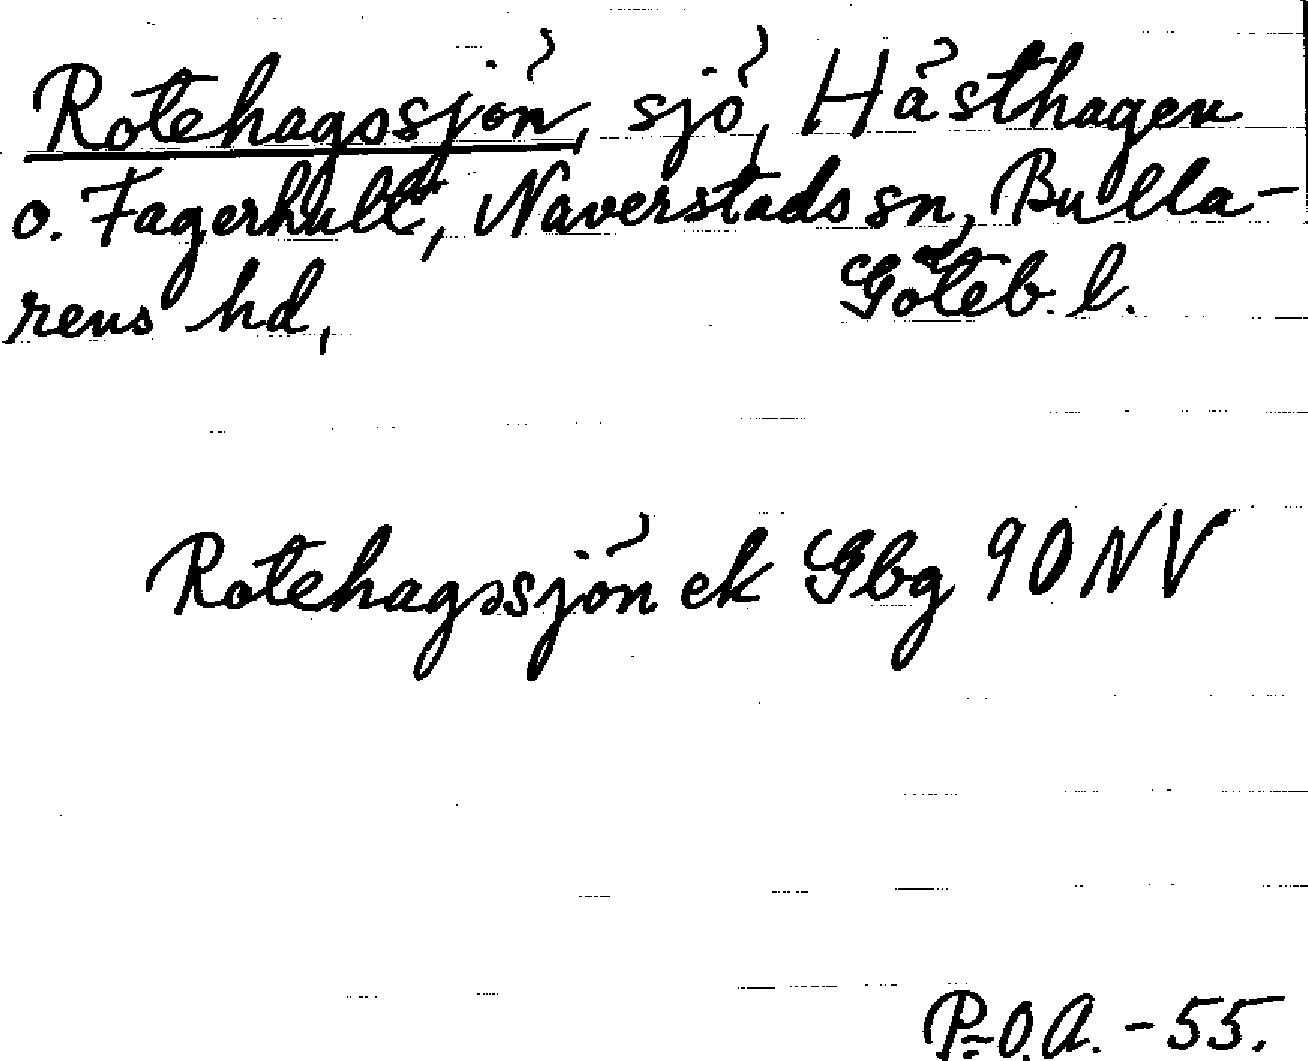 Rotehagssjön, sjö, Hästhagen
o. Fagerhult, Naverstads sn, Bulla-
rens hd, Göteb. l.
Rotehagssjön ek Gbg 90 NV
P.-O.A. - 55.